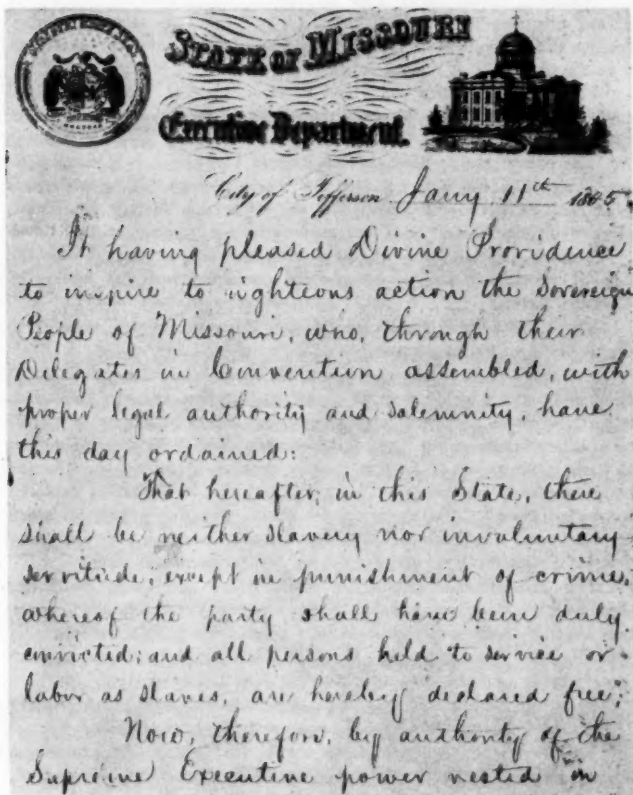 STATE OF MISSOURI
Executive Department.
City of Jefferson Jany 11th 1865.
It having pleased Divine Providence
to inspire to righteous action the Sovereign
People of Missouri, who, through their
Delegates in Convention assembled, with
proper legal authority and solemnity, have
this day ordained:
That hereafter, in this State, there
shall be neither slavery nor involuntary
servitude, except in punishment of crime,
whereof the party shall have been duly
convicted; and all persons held to service or
labor as slaves, are hereby declared free;
Now, therefore, by authority of the
Supreme Executive power vested in